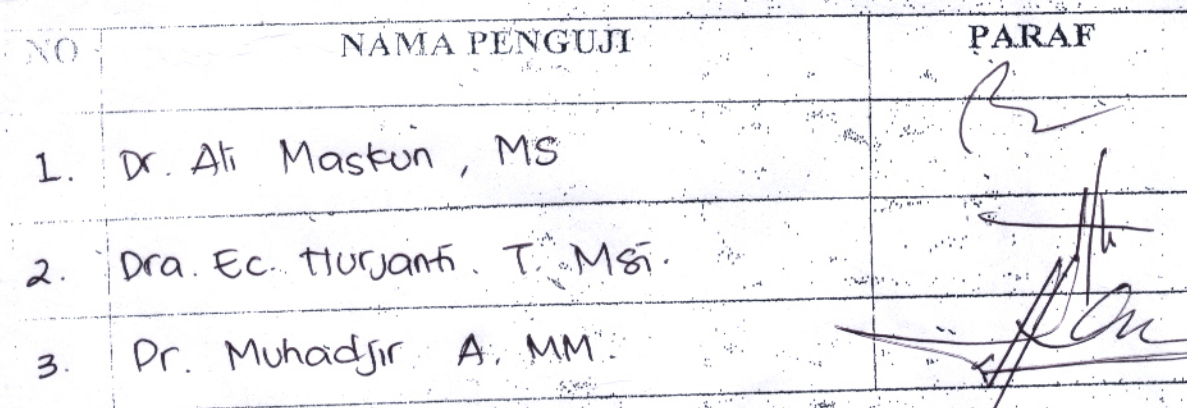 NO NAMA PENGUJI PARAF
1. Dr. Ali Maskun, MS
2. Dra. Ec. Nurjanti. T. Msi.
3. Dr. Muhadjir A. MM.